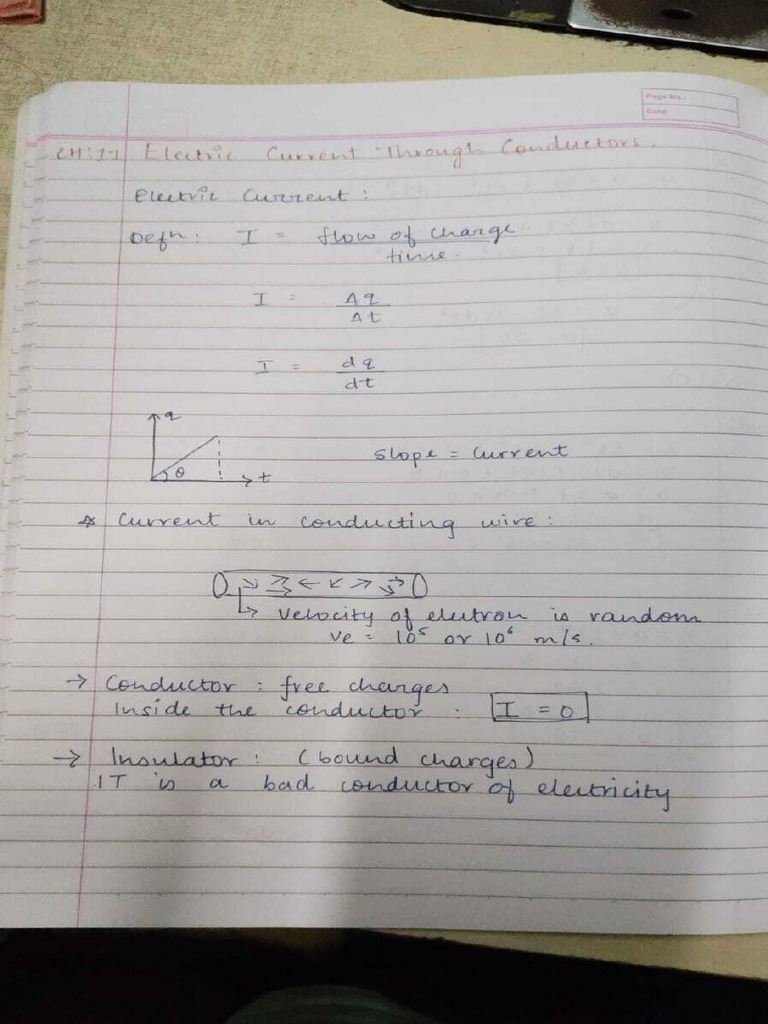 Page No.:
Date:
CH:11 Electric Current Through Conductors.
Electric Current :
Defn: I = flow of charge
time.
I = Δq
Δt
I = dq
dt
q
θ
t
slope = current
* Current in conducting wire :
↳ velocity of eletron is random
ve = 10⁵ or 10⁶ m/s.
→ Conductor : free charges
Inside the conductor : I = 0
→ Insulator : (bound charges)
IT is a bad conductor of electricity